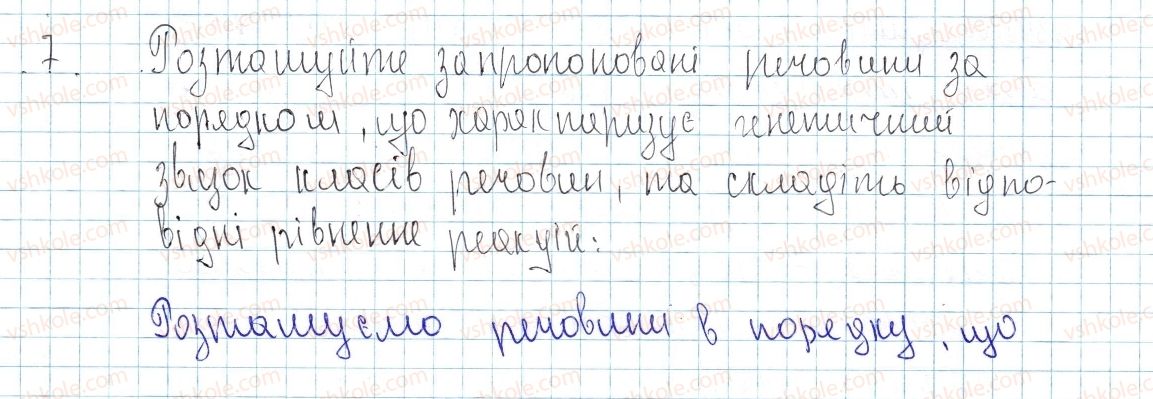 7. Розташуйте запропоновані речовини за
порядком, що характеризує генетичний
звʼязок класів речовин, та складіть відпо-
відні рівнення реакцій:
Розташуємо речовини в порядку, що